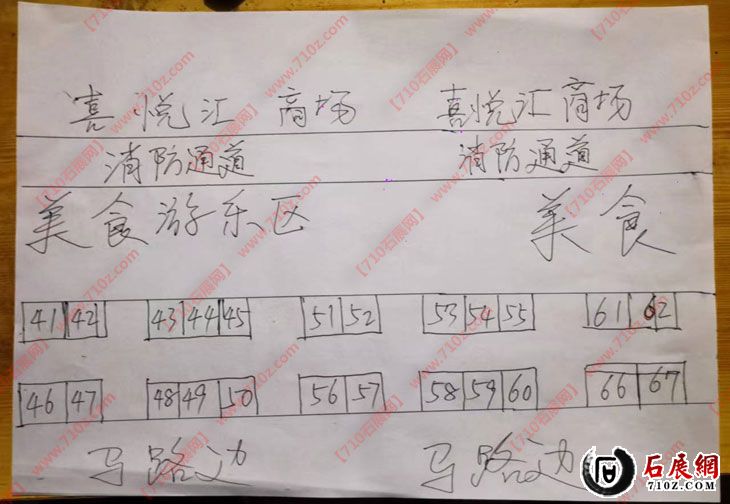 喜悦汇 商场 喜悦汇商场
消防通道 消防通道
美食游乐区 美食
41 42 43 44 45 51 52 53 54 55 61 62
46 47 48 49 50 56 57 58 59 60 66 67
马路边 马路边
【710石展网】www.710z.com
石展網
710Z.COM